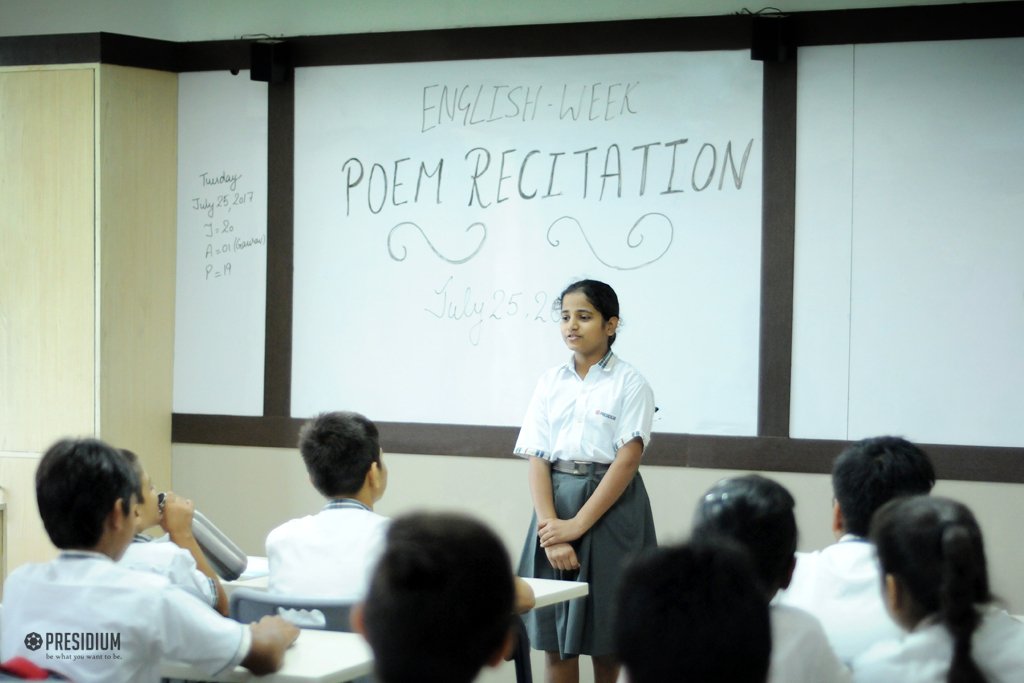 Tuesday
July 25, 2017
T = 20
A = 01 (Gaurav)
P = 19
ENGLISH-WEEK
POEM RECITATION
July 25, 20
PRESIDIUM
be what you want to be.